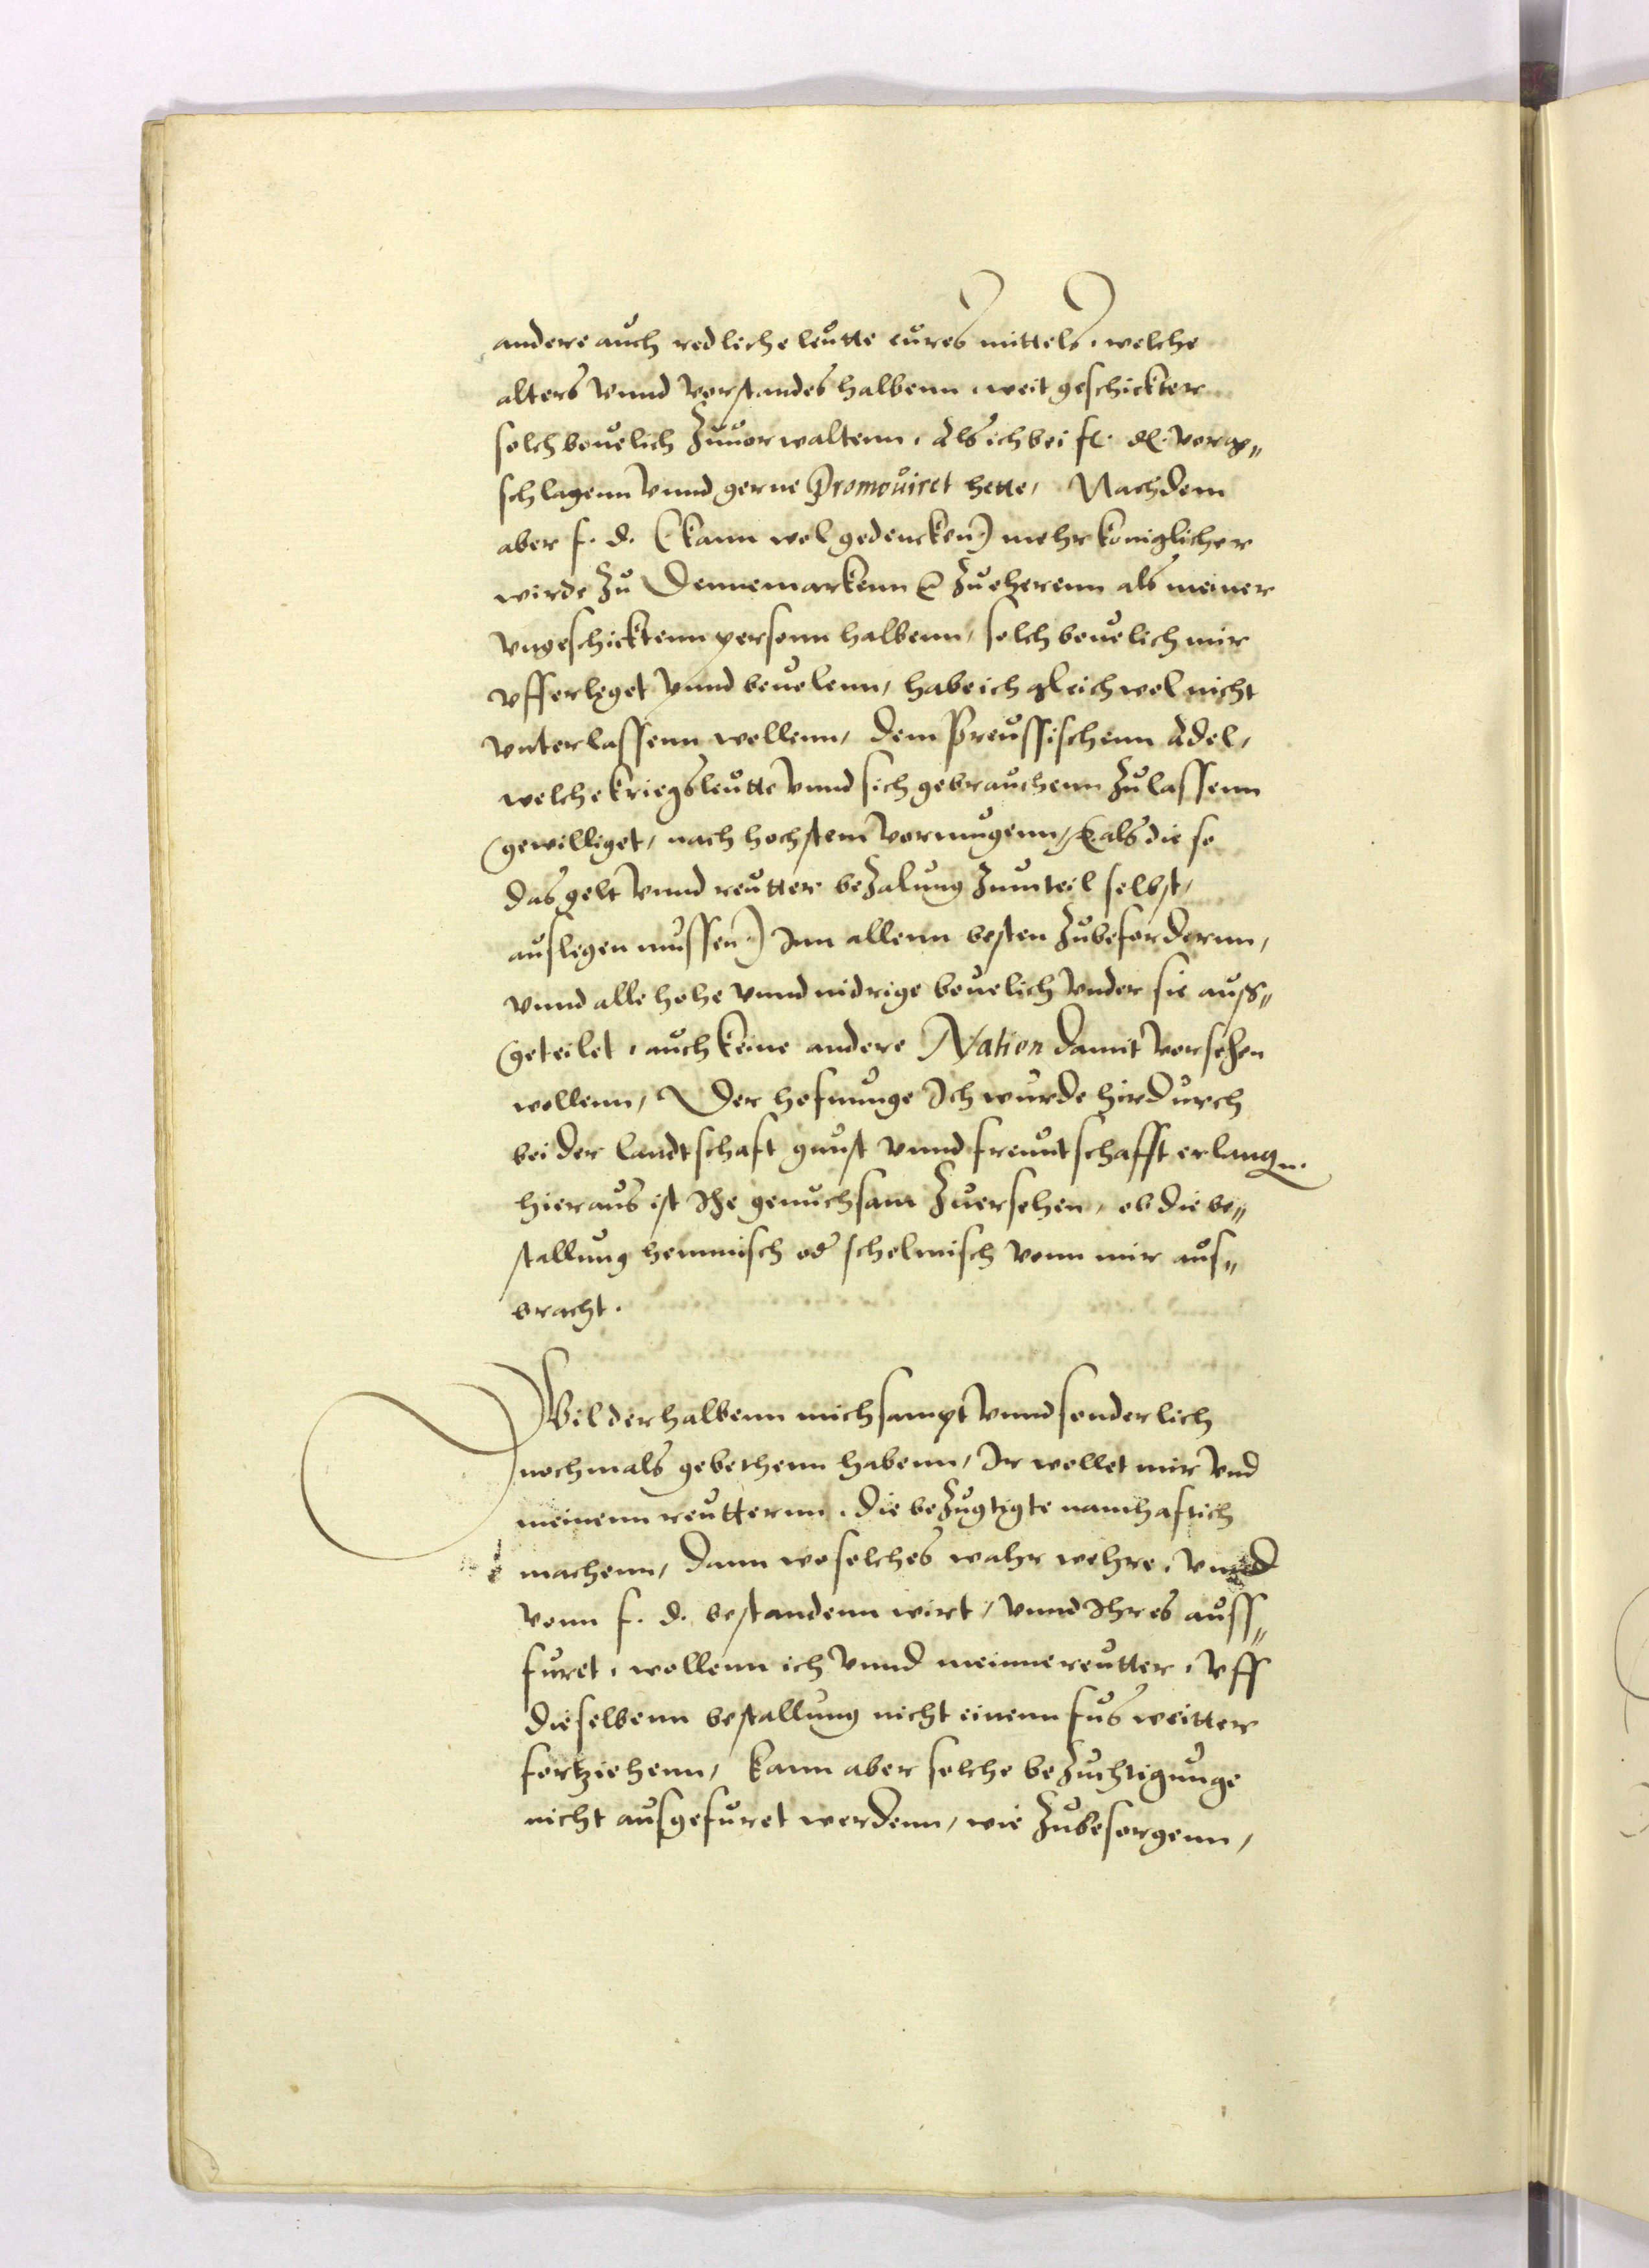 andere auch redliche leutte eures mittels, welche
alters vnnd vorstandes halbenn, weit geschickter
solch beuelich Zuuorwaltenn, Als ich bei fl. dl. vorge„
schlagenn vnnd gerne Promouiret hette, Nachdem
aber f. d. (kann wol gedencken) mehr koniglicher
wirde Zu Dennemarkenn Zu eherenn als meiner
vngeschicktenn personn halbenn, solch beuelich mir
vfferleget vnnd beuolenn, habe ich gleich wol nicht
vnterlassenn wollenn, dem Preussischenn Adel,
welche kriegsleutte vnnd sich gebrauchenn Zulassenn
gewilliget, nach hochstem vormugenn, (als die so
das gelt vnnd reutter beZalung Zumteil selbst,
auslegen mussen) Inn allenn besten Zubefordernn,
vnnd alle hohe vnnd nidrige beuelich vnder sie auss„
geteilet, auch keine andere Nation damit vorsehen
wollenn, Der hofnunge Ich wurde hirdurch
bei der landtschaft gunst vnnd freuntschafft erlangn.
hieraus ist Ihe genuchsam Zuersehen, ob die be„
stallung hemmisch od schelmisch vonn mir aus„
bracht.
Wil derhalbenn mich sampt vnnd sonderlich
nochmals gebethenn habenn, Ir wollet mir vnd
meinenn reutternn, die beZugtigte namhaftich
machenn, dann wo solches wahr wehre, vnnd
vonn f. d. bestandenn wirt, vnnd Ihr es auss„
furet, wollenn ich vnnd meinne reutter, vff
dieselbenn bestallung nicht einenn fus weitter
fortziehenn, kann aber solche beZuchtigunge
nicht ausgefuret werdenn, wie Zubesorgenn,